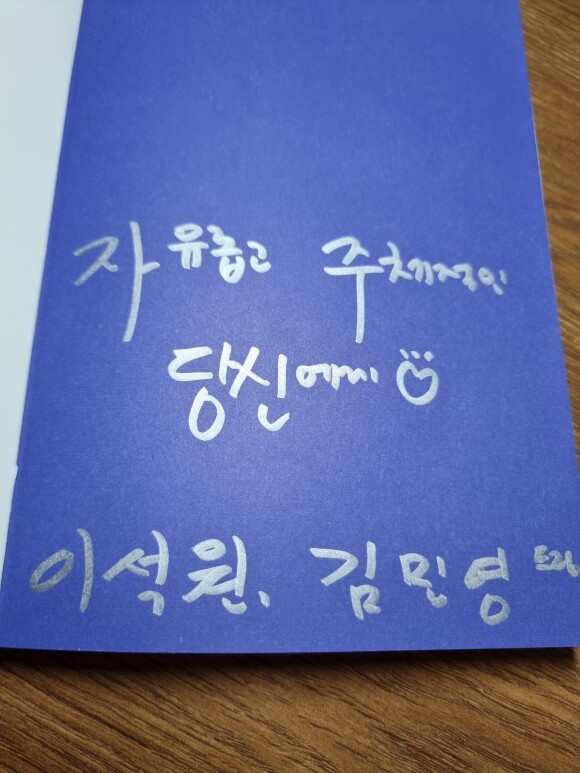 자유롭고 주체적인
당신에게
이석원, 김민영 드림